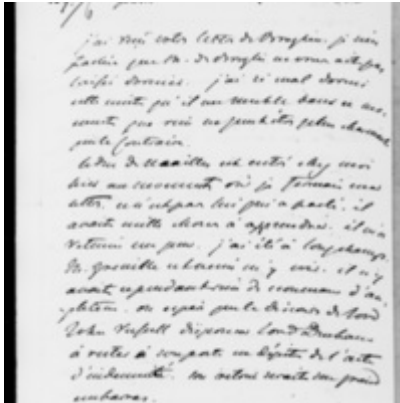 j'ai reçu votre lettre de Broglie. je suis
fachée que M. de Broglie ne vous ait pas
laissé dormir. j'ai si mal dormi
cette nuit qu'il me semble dans ce mo-
ment que rien ne peut être plus charmant
que le contraire.
le duc de Noailles est entré chez moi
hier au moment où je fermais ma
lettre. il n'est pas lui parti. il
avait mille choses à apprendre. il m'a
retenue un peu. j'ai été à longchamp.
M. est venu m'y voir. il n'y
avait cependant rien de nouveau d'an-
gleterre. on espère que le discours de lord
John Russell disposera lord Durham
à rester à son poste en dépit de l'acte
d'indemnité. son retour serait un grand
embarras.